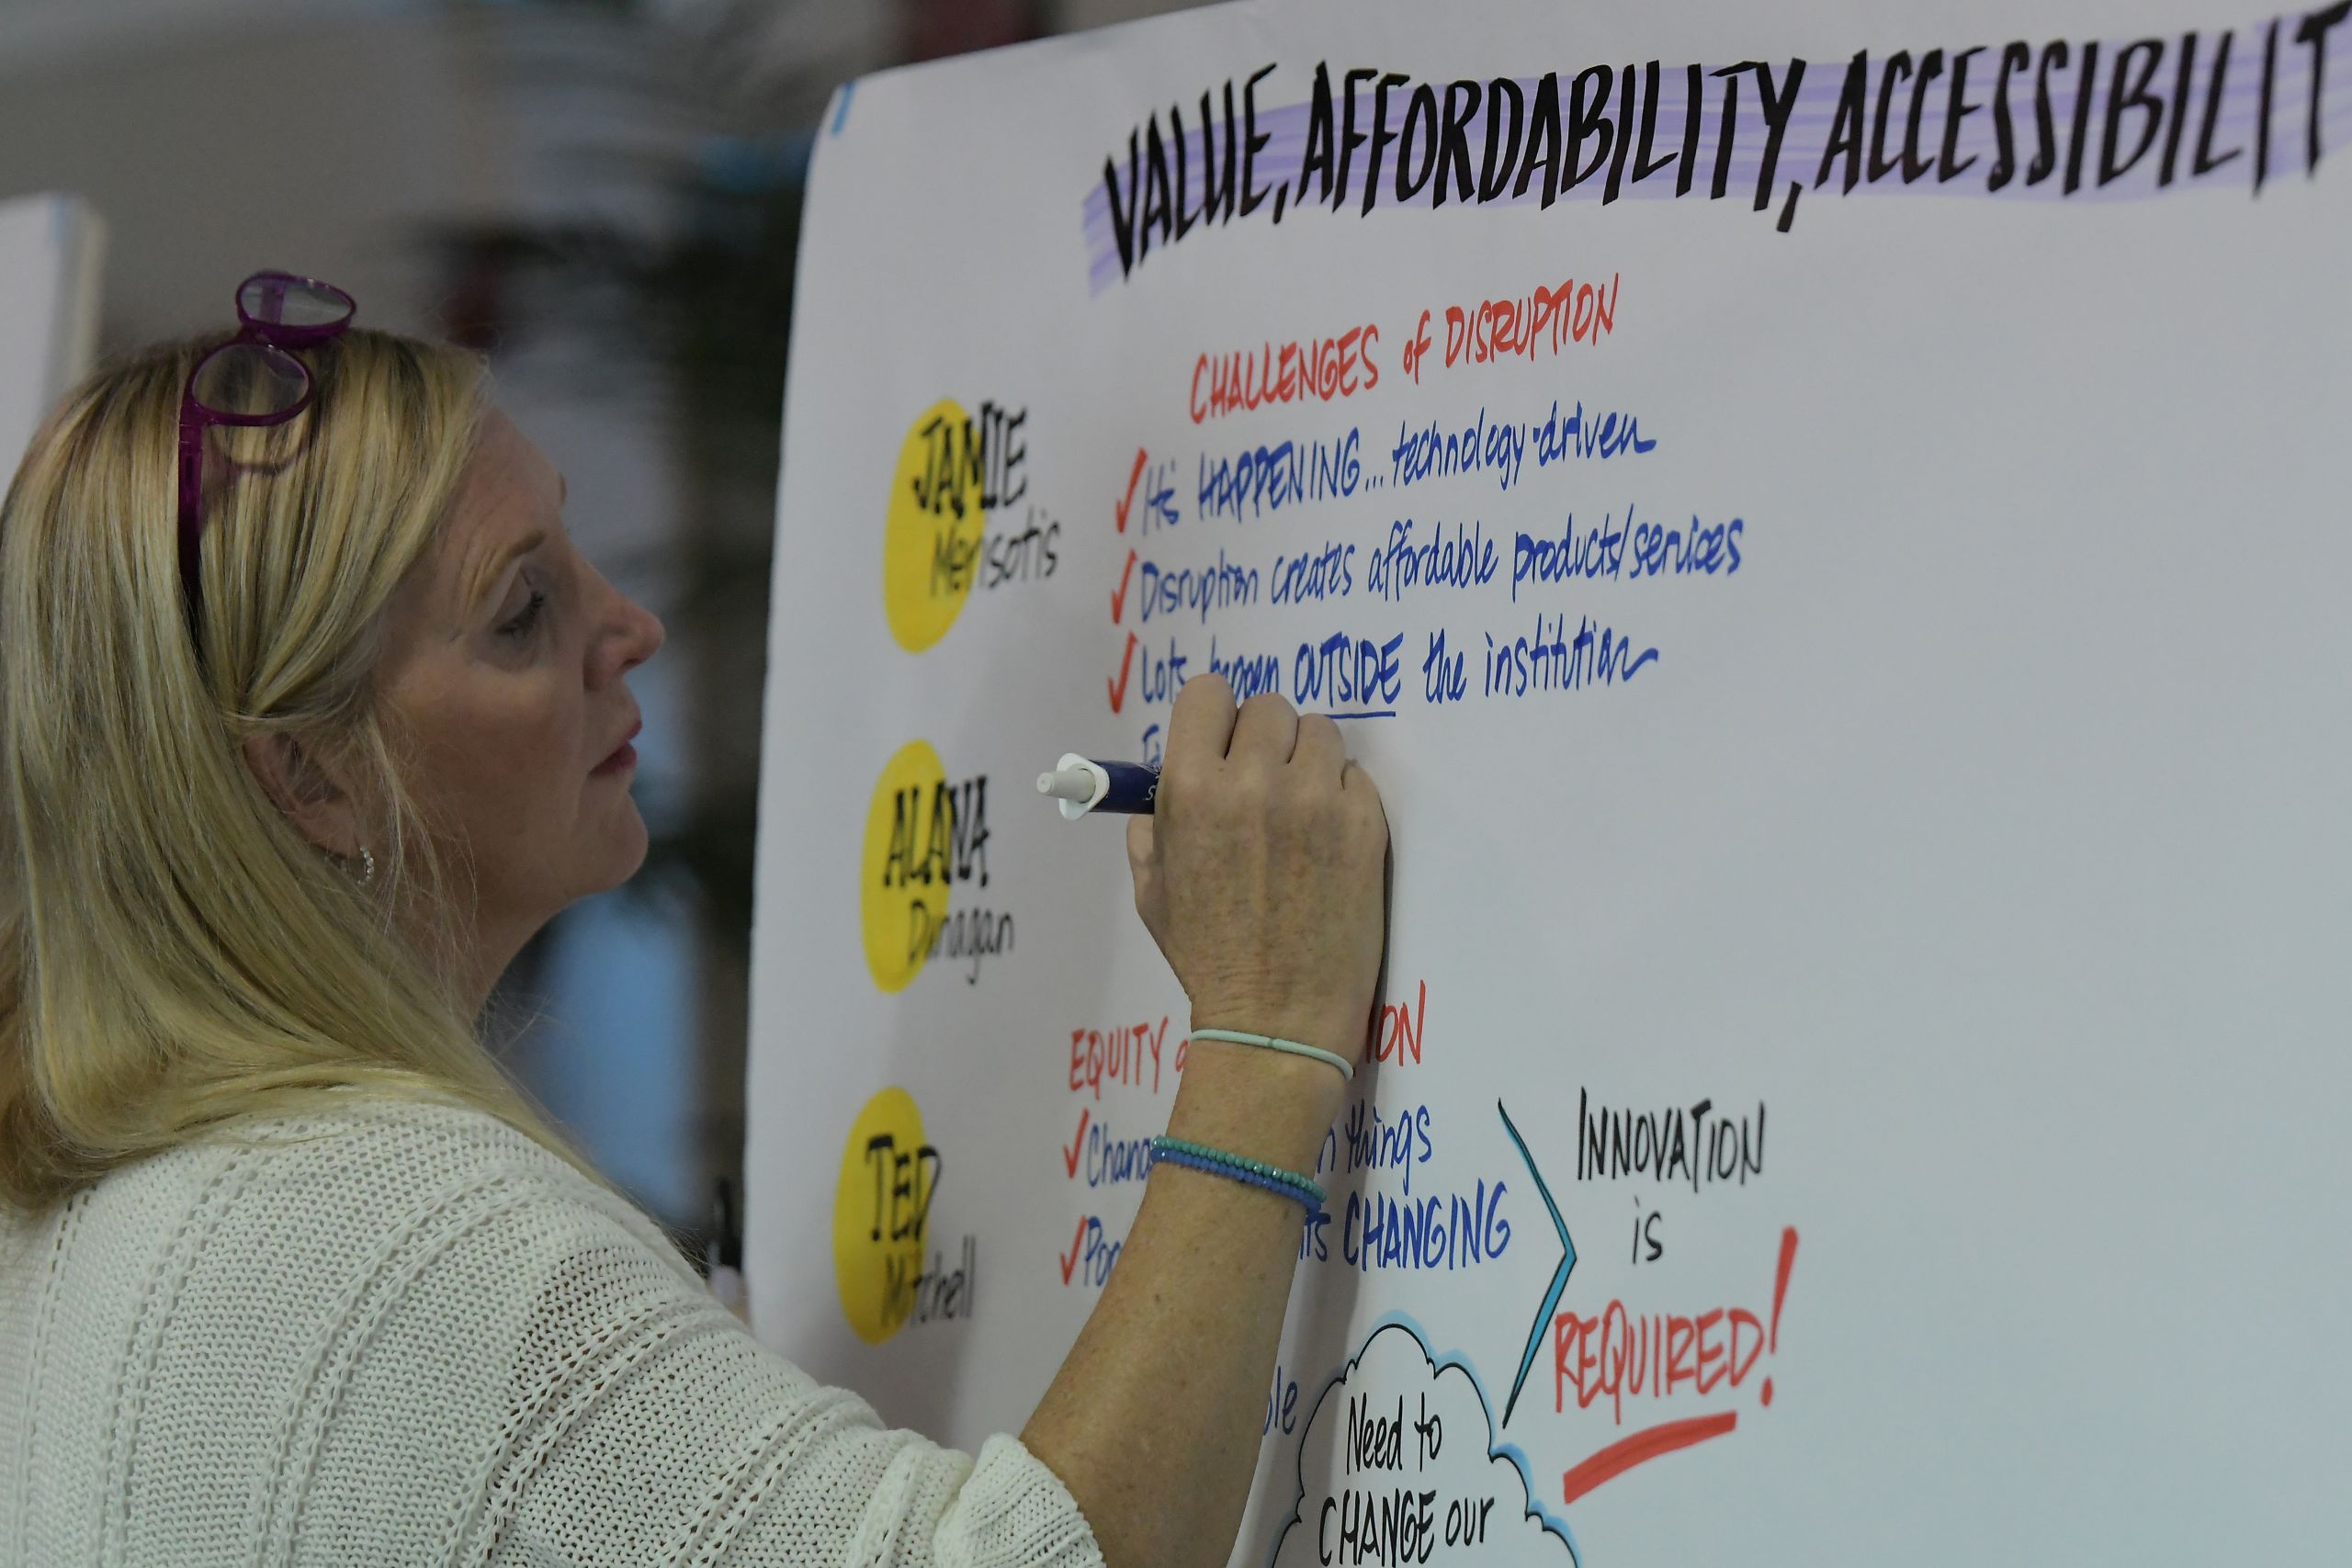 VALUE, AFFORDABILITY, ACCESSIBILIT
CHALLENGES of DISRUPTION
JAMIE
Merisotis
✓ It's HAPPENING... technology-driven
✓ Disruption creates affordable products/services
✓ Lots happen OUTSIDE the institution
ALANA
Dunagan
EQUITY
TED
Mitchell
things
CHANGING
INNOVATION
is
REQUIRED!
Need to
CHANGE our